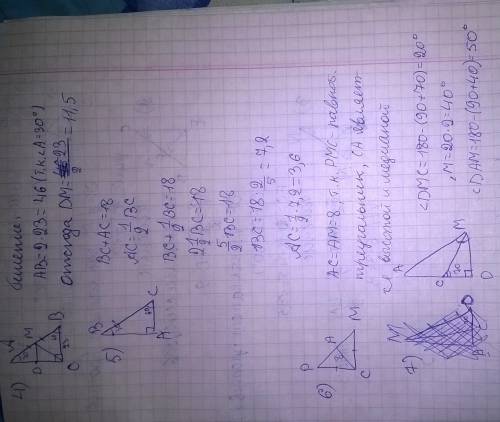 4) Решение.
AB=2·23=46 (т.к. ∠A=30°)
Отсюда DM=23/2=11,5
5) BC+AC=18
AC=1/2 BC
BC+1/2 BC=18
2 1/2 BC=18
5/2 BC=18
BC=18·2/5=7,2
AC=1/2·7,2=3,6
6) AC=AM=8, т.к. PMC-равноб.
треугольник, CA являет
ся высотой и медианой
7) ∠DMC=180-(90+70)=20°
∠M=20·2=40°
∠DAM=180-(90+40)=50°